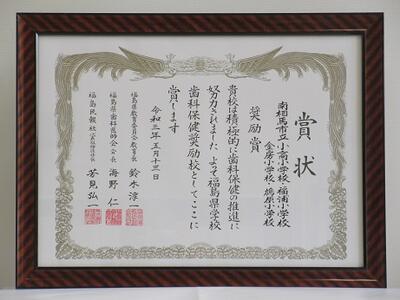 賞状
南相馬市立小高小学校・福浦小学校
金房小学校・鳩原小学校
奨励賞
貴校は積極的に歯科保健の推進に
努力されました よって福島県学校
歯科保健奨励校としてここに
賞します
令和三年五月十三日
福島県教育委員会教育長 鈴木淳一
福島県歯科医師会会長 海野仁
福島民報社 芳見弘一